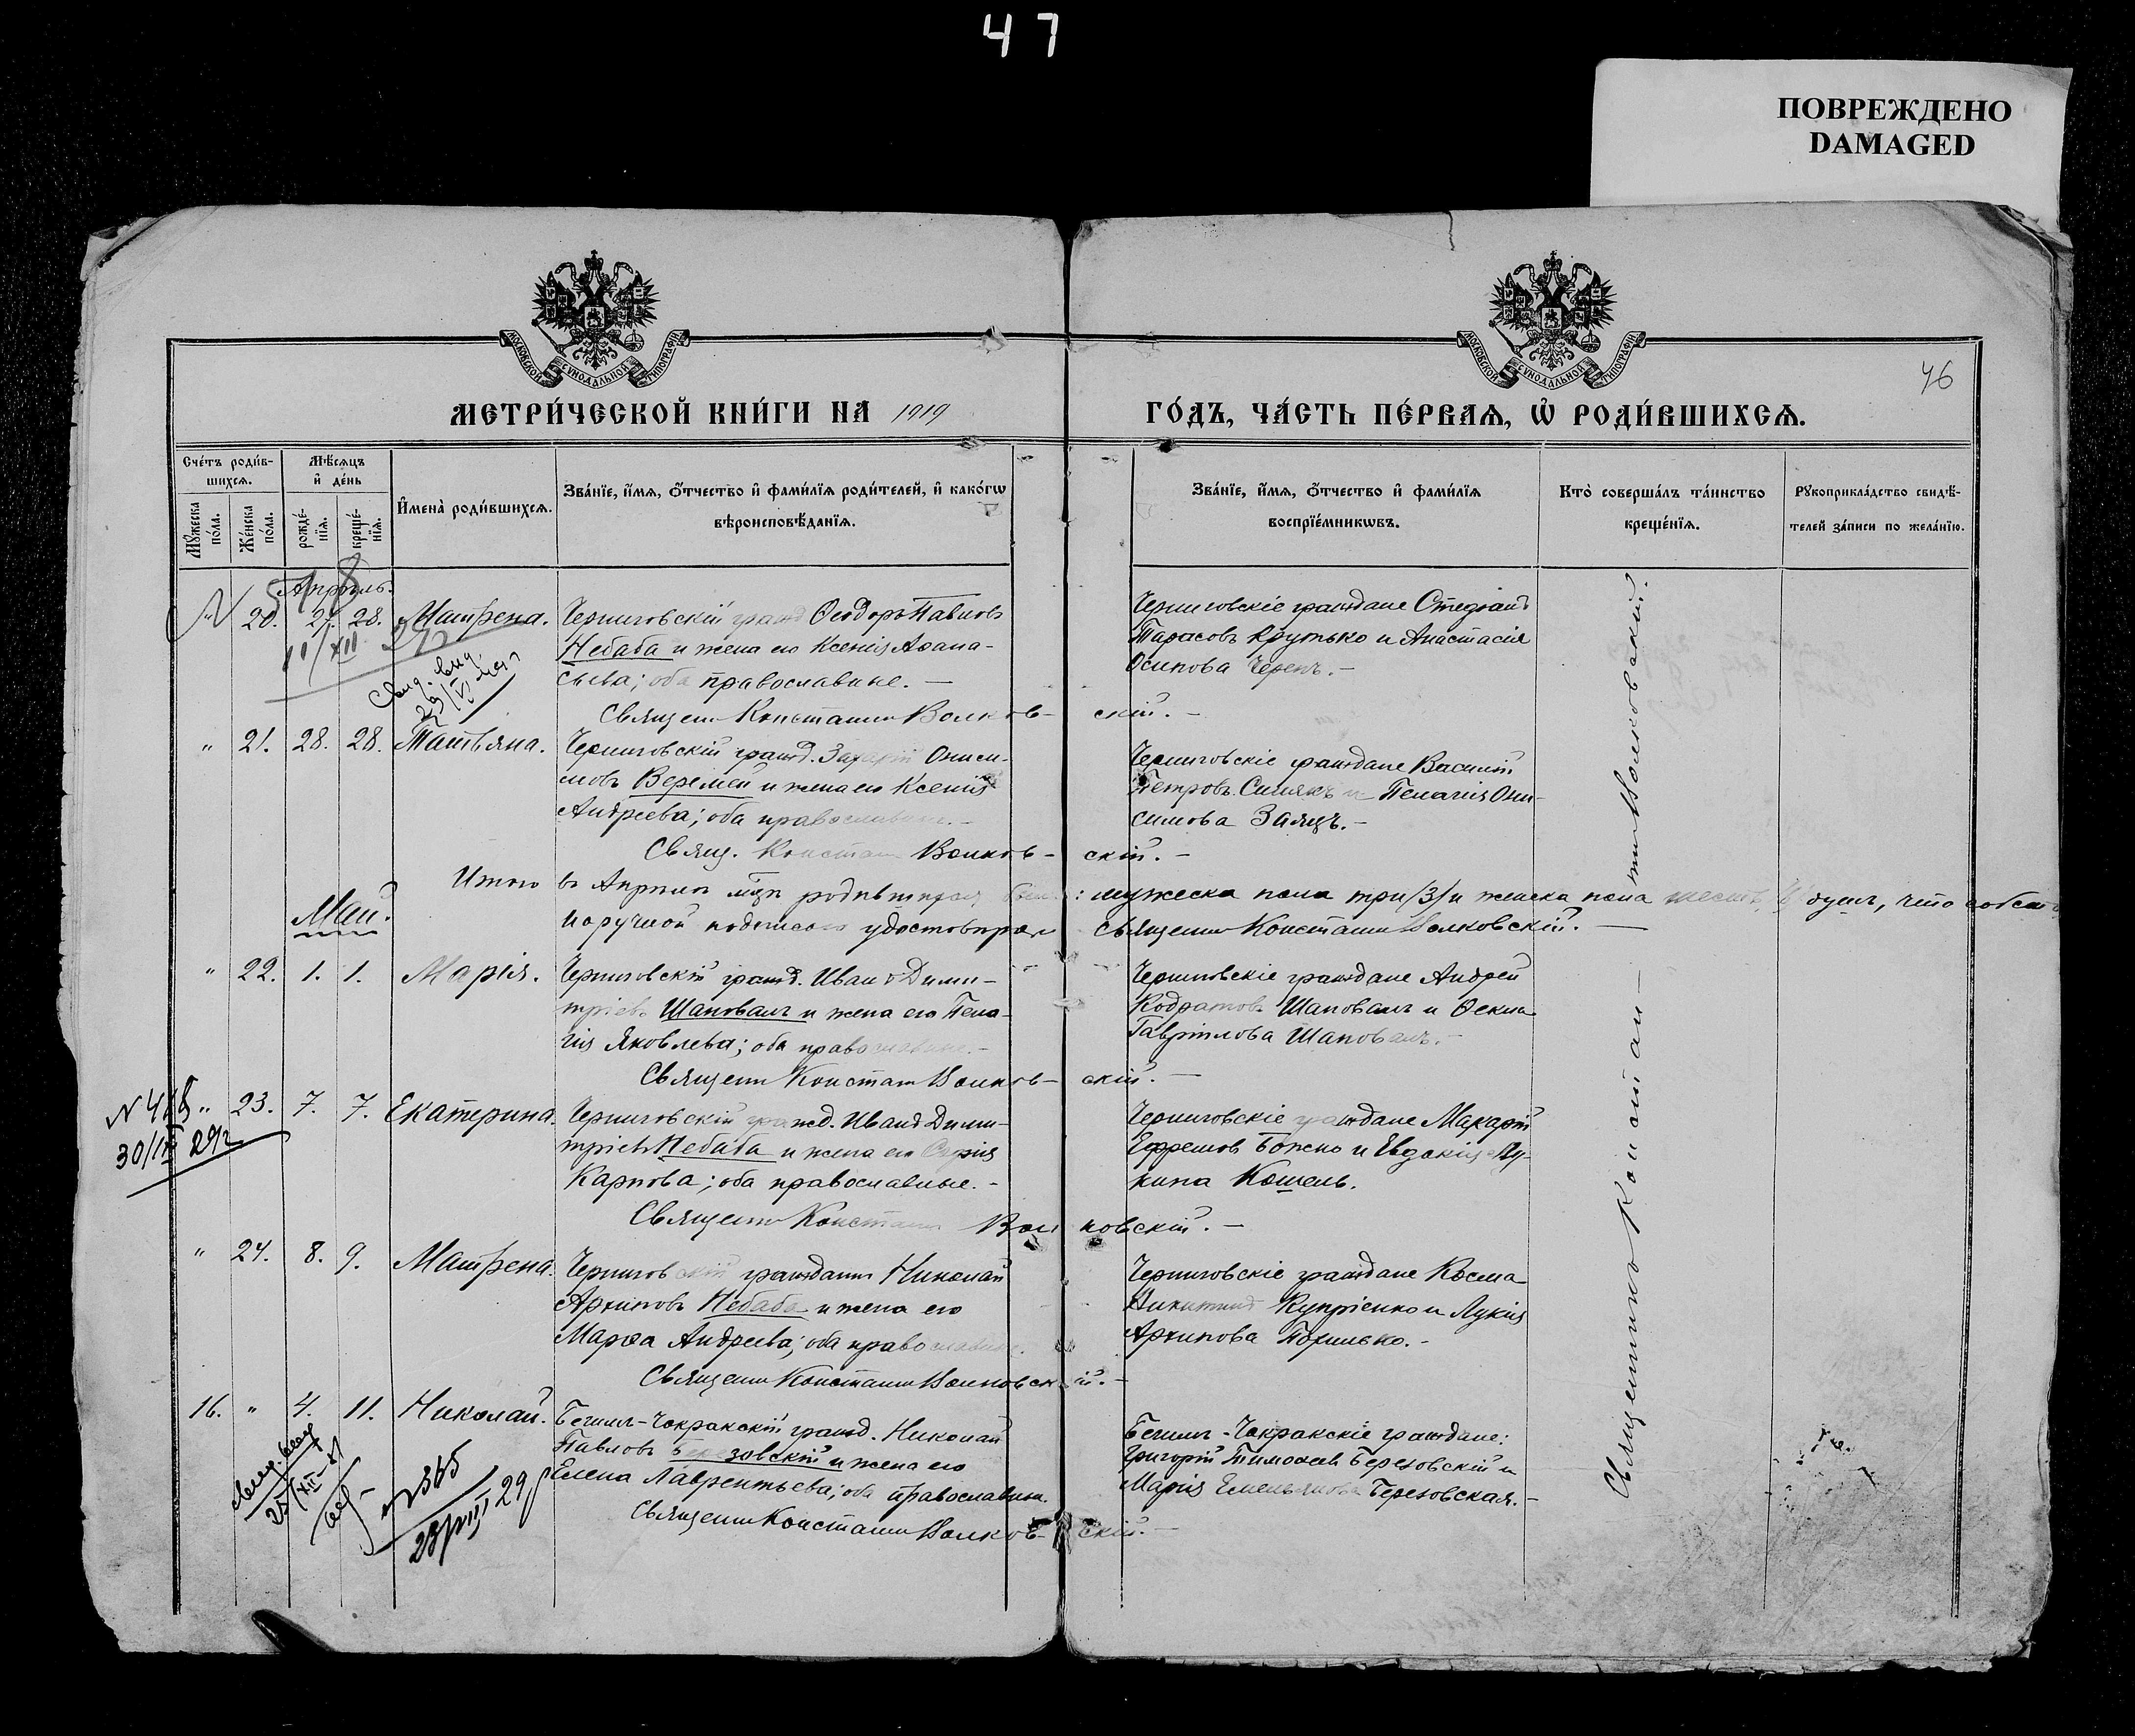 47
ПОВРЕЖДЕНО
DAMAGED
МОСКОВСКОЙ СѴНОДАЛЬНОЙ ТИПОГРАФІИ
МОСКОВСКОЙ СѴНОДАЛЬНОЙ ТИПОГРАФІИ
46
МЕТРИ́ЧЕСКОЙ КНИ́ГИ НА 1919 ГО́ДЪ, ЧА́СТЬ ПЕ́РВАЯ, Ѡ҆ РОДИ́ВШИХСЯ.
Сче́тъ роди́в-
шихся.
Мѣ́сяцъ
и҆ де́нь
Мꙋ́жеска
по́ла.
Же́нска
по́ла.
рожде́-
нїя.
креще́-
нїя.
И҆мена̀ роди́вшихся.
Зва́нїе, и҆́мя, ѻ҆́тчество и҆ фами́лїя роди́телей, и҆ како́гѡ
вѣроисповѣ́данїя.
Зва́нїе, и҆́мя, ѻ҆́тчество и҆ фами́лїя
воспрїе́мникѡвъ.
Кто̀ соверша́лъ та́инство
креще́нїя.
Рꙋкоприкла́дство свидѣ́-
телей за́писи по жела́нїю.
Апрѣль.
" 20. 27. 28. Матрена.
Черниговскій гражд Ѳеодоръ Павловъ
Небаба и жена его Ксенія Аѳана-
сьева; оба православные. —
Священ Константин Волков- скій. -
Черниговскіе граждане Стефанъ
Тарасовъ Крутько и Анастасія
Осипова Черепъ. -
" 21. 28. 28. Татьяна.
Черниговскій гражд. Захарій Ониси-
мовъ Веремей и жена его Ксенія
Андреева; оба православные. -
Свящ. Констан Волков- скій. -
Черниговскіе граждане Василій
Петровъ Синякъ и Пелагія Они-
симова Заяцъ. -
Итого въ Апрѣлѣ м҃цѣ родившихся было: мужеска пола три /3/ и женска пола шесть душъ, что собст
норучной подписью удостовѣряю Священник Константин Волковскій. —
Май.
" 22. 1. 1. Марія.
Черниговскій гражд. Иванъ Дими-
тріевъ Шаповалъ и жена его Пела-
гія Яковлева; оба православные. -
Священ Констан Волков- скій. -
Черниговскіе граждане Андрей
Кодратовъ Шаповалъ и Ѳекла
Гавріилова Шаповалъ. -
N 418
30/IX 29г
" 23. 7. 7. Екатерина.
Черниговскій гражд. Иванъ Дими-
тріевъ Небаба и жена его
Карпова; оба православные. -
Священ Констан Вол ковскій. -
Черниговскіе граждане Макарій
Ефремовъ Божко и Евдокія Лу-
кина Кошель.
" 24. 8. 9. Матрена.
Черниговскій гражданин Николай
Архиповъ Небаба и жена его
Марѳа Андреева; оба православные.
Священ Константин Волковск ій. -
Черниговскіе граждане Косма
Никитинъ Купріенко и Лукія
Архипова Похилько. -
16. " 4. 11. Николай.
Бегимъ-Чокракскій гражд. Николай
Павловъ Березовскій и жена его
Елена Лаврентьева; оба православные.
Священ Константин Волков- скій. -
Бегимъ-Чокракскіе граждане:
Григорій Тимоѳеевъ Березовскій и
Марія Емельянова Березовская. -
Священникъ Константинъ Волковскій.